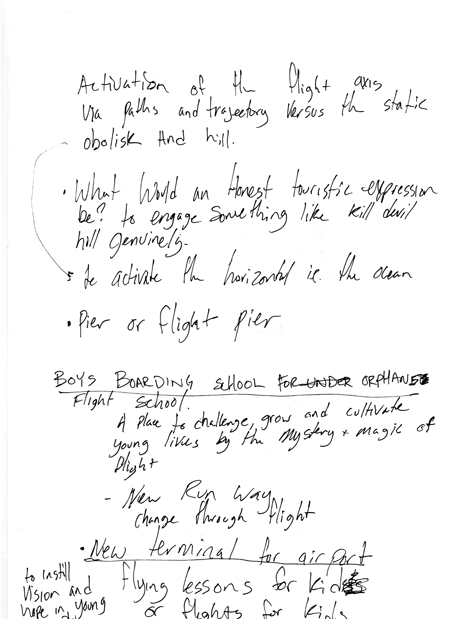 Activation of the flight axis
via paths and trajectory versus the static
obolisk and hill.
• What would an Honest touristic expression
be? to engage something like kill devil
hill genuinely.
to activate the horizontal ie. the ocean
• Pier or flight pier
BOYS BOARDING SCHOOL FOR UNDER ORPHANS
Flight School.
A place to challenge, grow and cultivate
young lives by the mystery + magic of
flight
- New Run way
change through flight
• New terminal for airport
to instill
vision and
hope in young
flying lessons for kids
or flights for kids